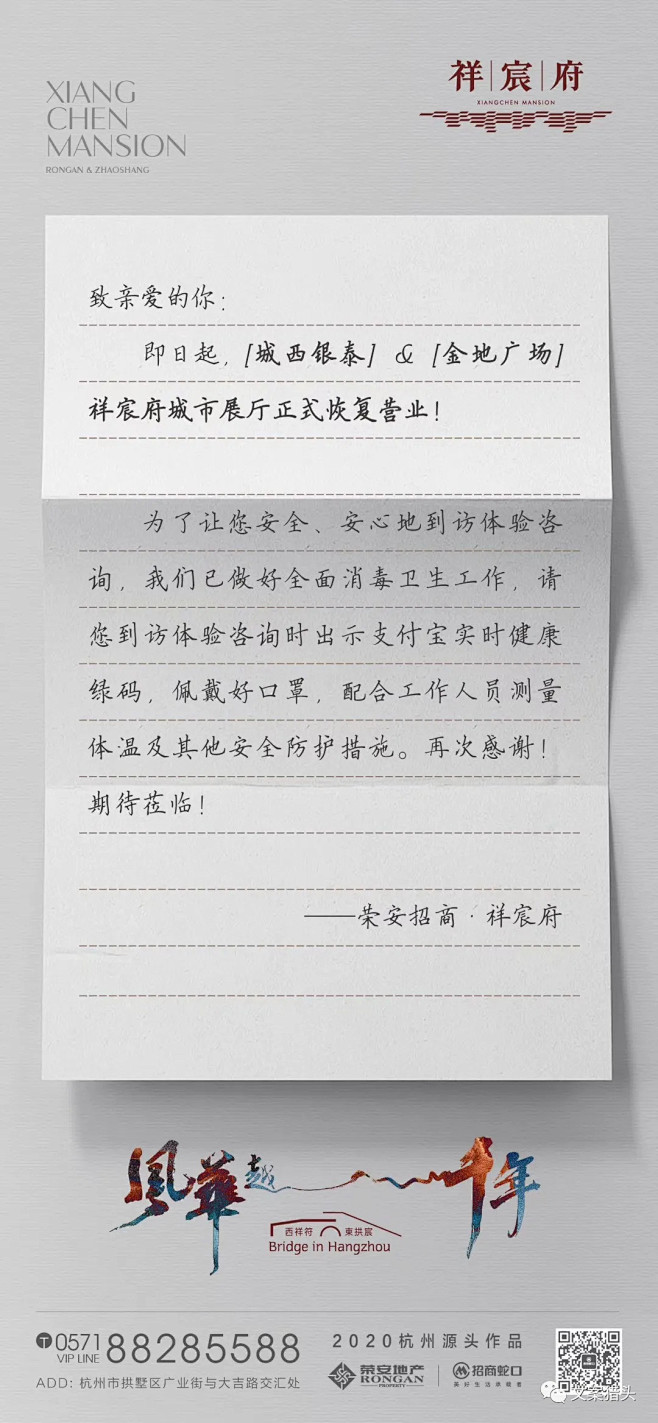 XIANG
CHEN
MANSION
RONGAN & ZHAOSHANG
祥宸府
XIANGCHEN MANSION
致亲爱的你：
即日起，[城西银泰] & [金地广场]
祥宸府城市展厅正式恢复营业！
为了让您安全、安心地到访体验咨
询，我们已做好全面消毒卫生工作，请
您到访体验咨询时出示支付宝实时健康
绿码，佩戴好口罩，配合工作人员测量
体温及其他安全防护措施。再次感谢！
期待莅临！
——荣安招商·祥宸府
风华越千年
西祥符 東拱宸
Bridge in Hangzhou
T 0571 88285588
VIP LINE
ADD: 杭州市拱墅区广业街与大吉路交汇处
2020杭州源头作品
荣安地产
RONGAN
PROPERTY
招商蛇口
美好生活承载者
文案猎头